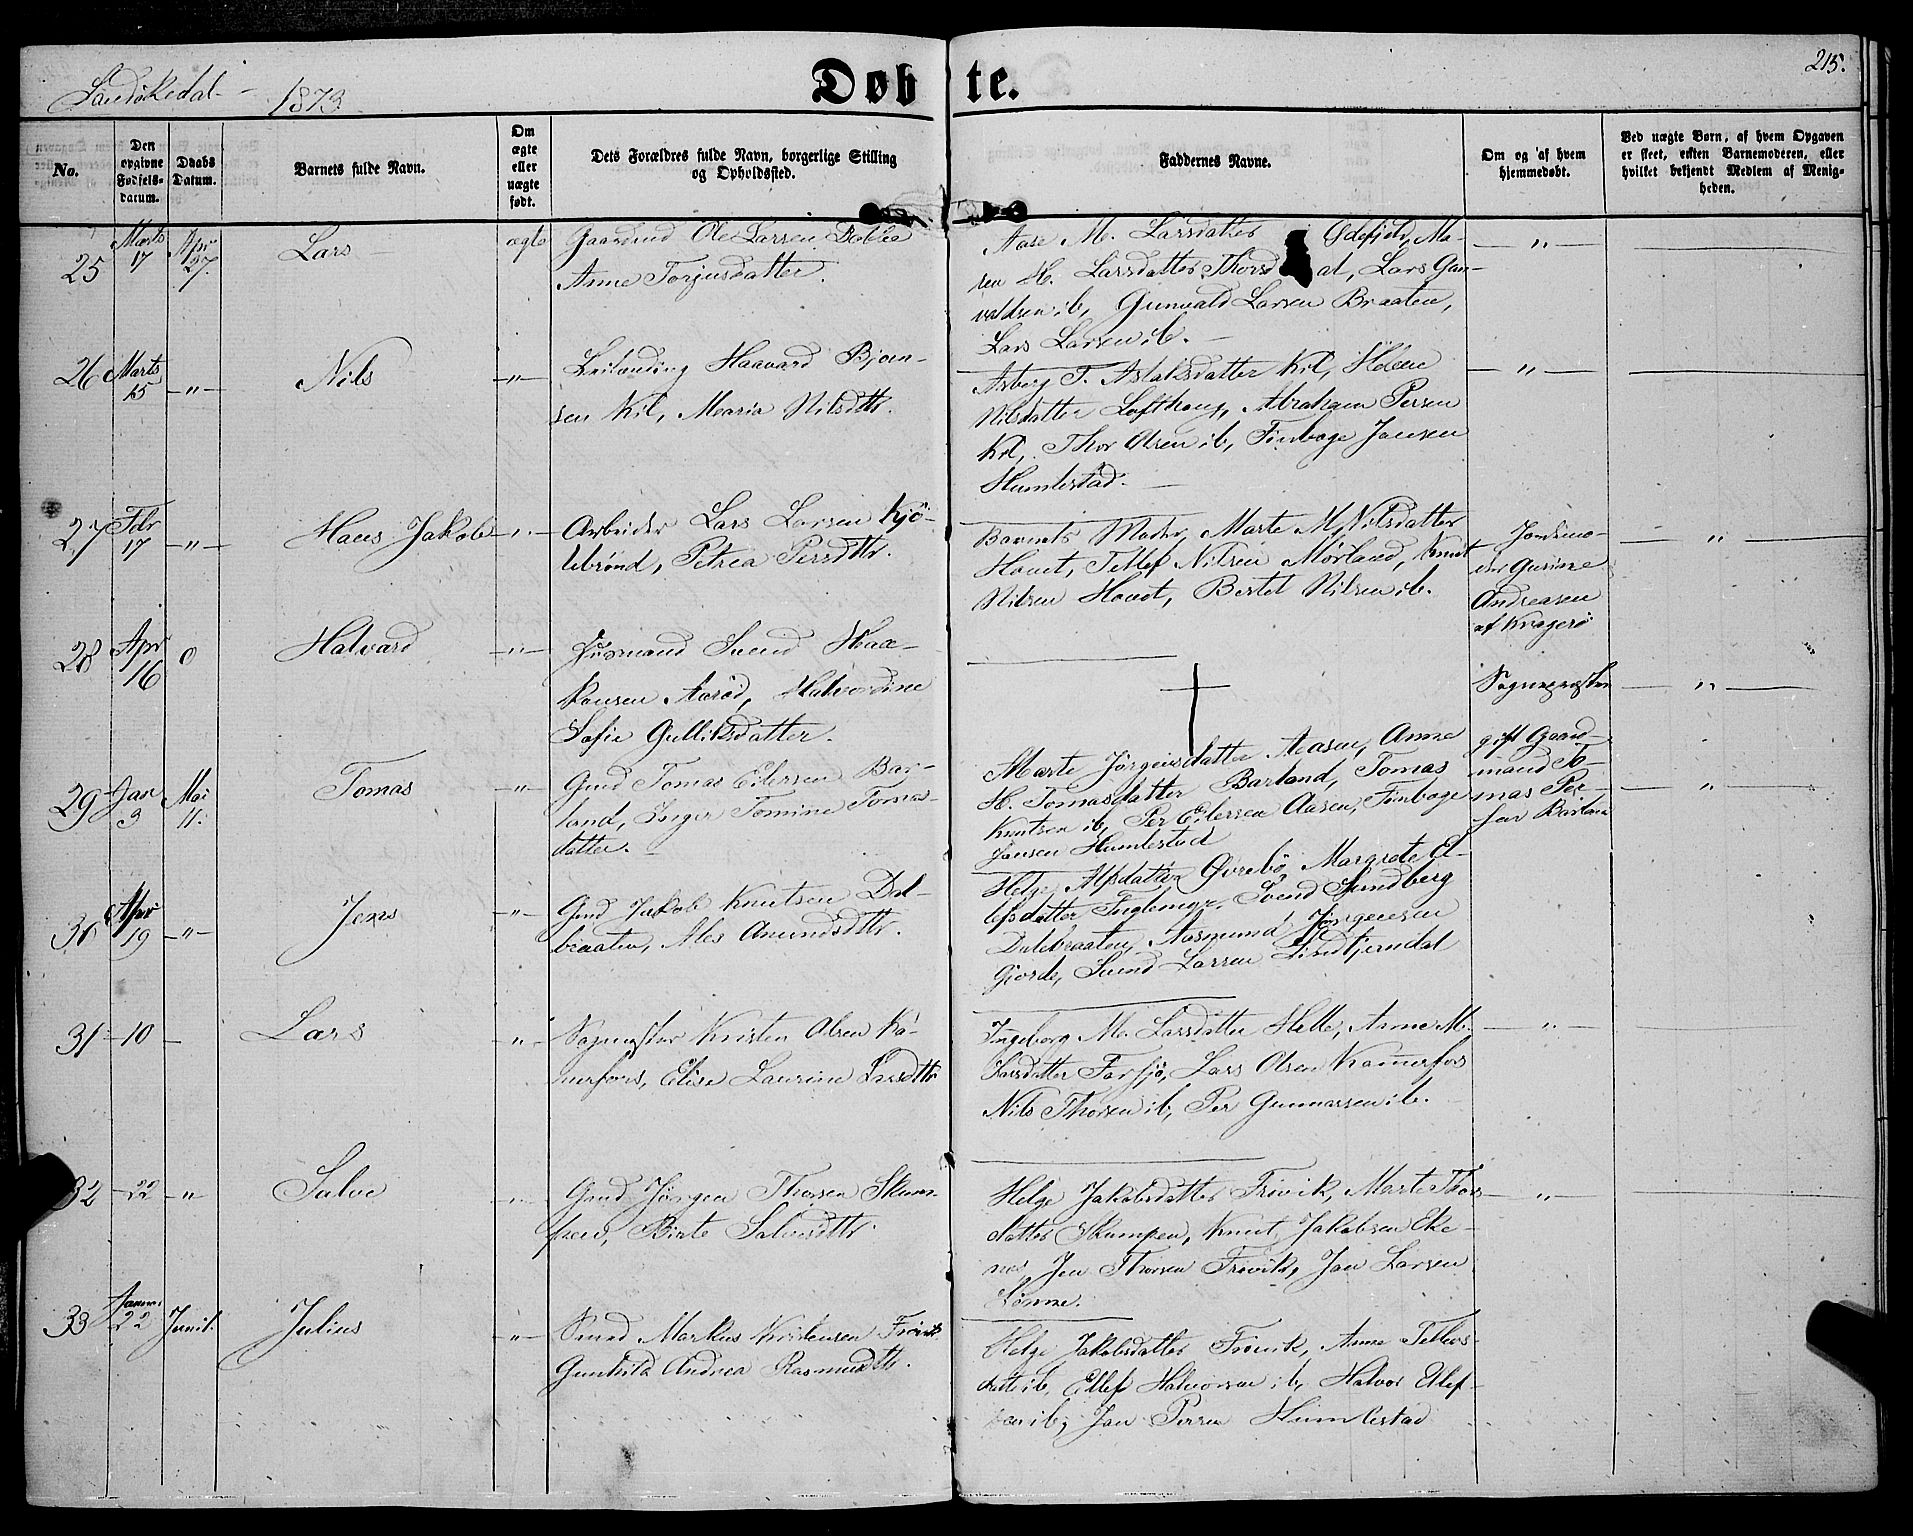 Sandøkedal - 1873
Døbte.
215.
No.
Den opgivne Fødsels-datum.
Daabs Datum.
Barnets fulde Navn.
Om ægte eller uægte født.
Dets Forældres fulde Navn, borgerlige Stilling og Opholdssted.
Faddernes Navne.
Om og af hvem hjemmedøbt.
Ved uægte Børn, af hvem Opgaven er skeet, enten Barnemoderen, eller hvilket bekjendt Medlem af Menigheden.
25 Marts 17 Apr 27. Lars ægte
Gaardmd Ole Larsen
Anne Torjusdatter.
Aase M. Larsdatter Ødefjeld, Ma-
ren H. Larsdatter Thorsdal, Lars Gun-
valdsen ib, Gunvald Larsen Braaten,
Lars Larsen ib.
26 Marts 15 " Nils "
Leilænding Haavard Bjørn-
sen Kil, Maria Nilsdtr.
Asberg T. Aslaksdatter Kil, Helene
Nilsdatter Lofthaug, Abraham Persen
Kil, Thor Olsen ib, Finboge Jansen
Humlestad.
27 Febr 17 " Hans Jakob "
Arbeider Lars Larsen Kjø-
lebrønd, Petrea Persdtr.
Barnets Moder, Marte M. Nilsdatter
Hovet, Tellef Nilsen Mørland, Knut
Nilsen Hovet, Bertel Nilsen ib.
Jordemo-
der Gurine
Andreasen
af Kragerø
"
28 Apr 16 0 Halvard "
Husmand Svend Haa-
konsen Aarød, Halvordine
Sofie Gulliksdatter.
Sognepræsten
"
29 Jan 3 Mai 11. Tomas "
Gmd Tomas Eilersen Bar-
land, Inger Tomine Tomas-
datter.
Marte Jørgensdatter Aasen, Anne
H. Tomasdatter Barland, Tomas
Knutsen ib, Per Eilersen Aasen, Finboge
Jansen Humlestad
gift Gaard-
mand To-
mas Per-
sen Barland
"
30 Apr 19 " Jens "
Gmd Jakob Knutsen Dal-
braaten, Ales Amundsdtr.
Helge Alfsdatter Øvrebø, Margrete El-
lefsdatter Inglemyr, Svend Sundberg
Dalebraaten, Aasmund Jørgensen
Gjorde, Svend Larsen Lindtjerndal
31 10 Lars "
Sagmester Kristen Olsen Ka-
merfoss, Elise Laurine Larsdtr
Ingeborg M. Larsdatter Helle, Anne M.
Larsdatter Farsjø, Lars Olsen Kamerfos
Nils Thorsen ib, Per Gunnarsen ib.
"
32 22 " Salve "
Gmd Jørgen Thorsen Skum-
pen, Birte Salvesdtr.
Helge Jakobsdatter Frøvik, Marte Thors-
datter Skumpen, Knut Jakobsen Eke-
nes, Jen Thorsen Frøvik, Jan Larsen
Tønne.
"
33 Januar 22 Juni 1. Julius "
Smed Markus Kristensen Frøvik
Gunhild Andrea Rasmusdtr.
Helge Jakobsdatter Frøvik, Anne Tellefs-
datter ib, Ellef Halvorsen ib, Halvor Ellef-
sen ib, Jan Persen Humlestad